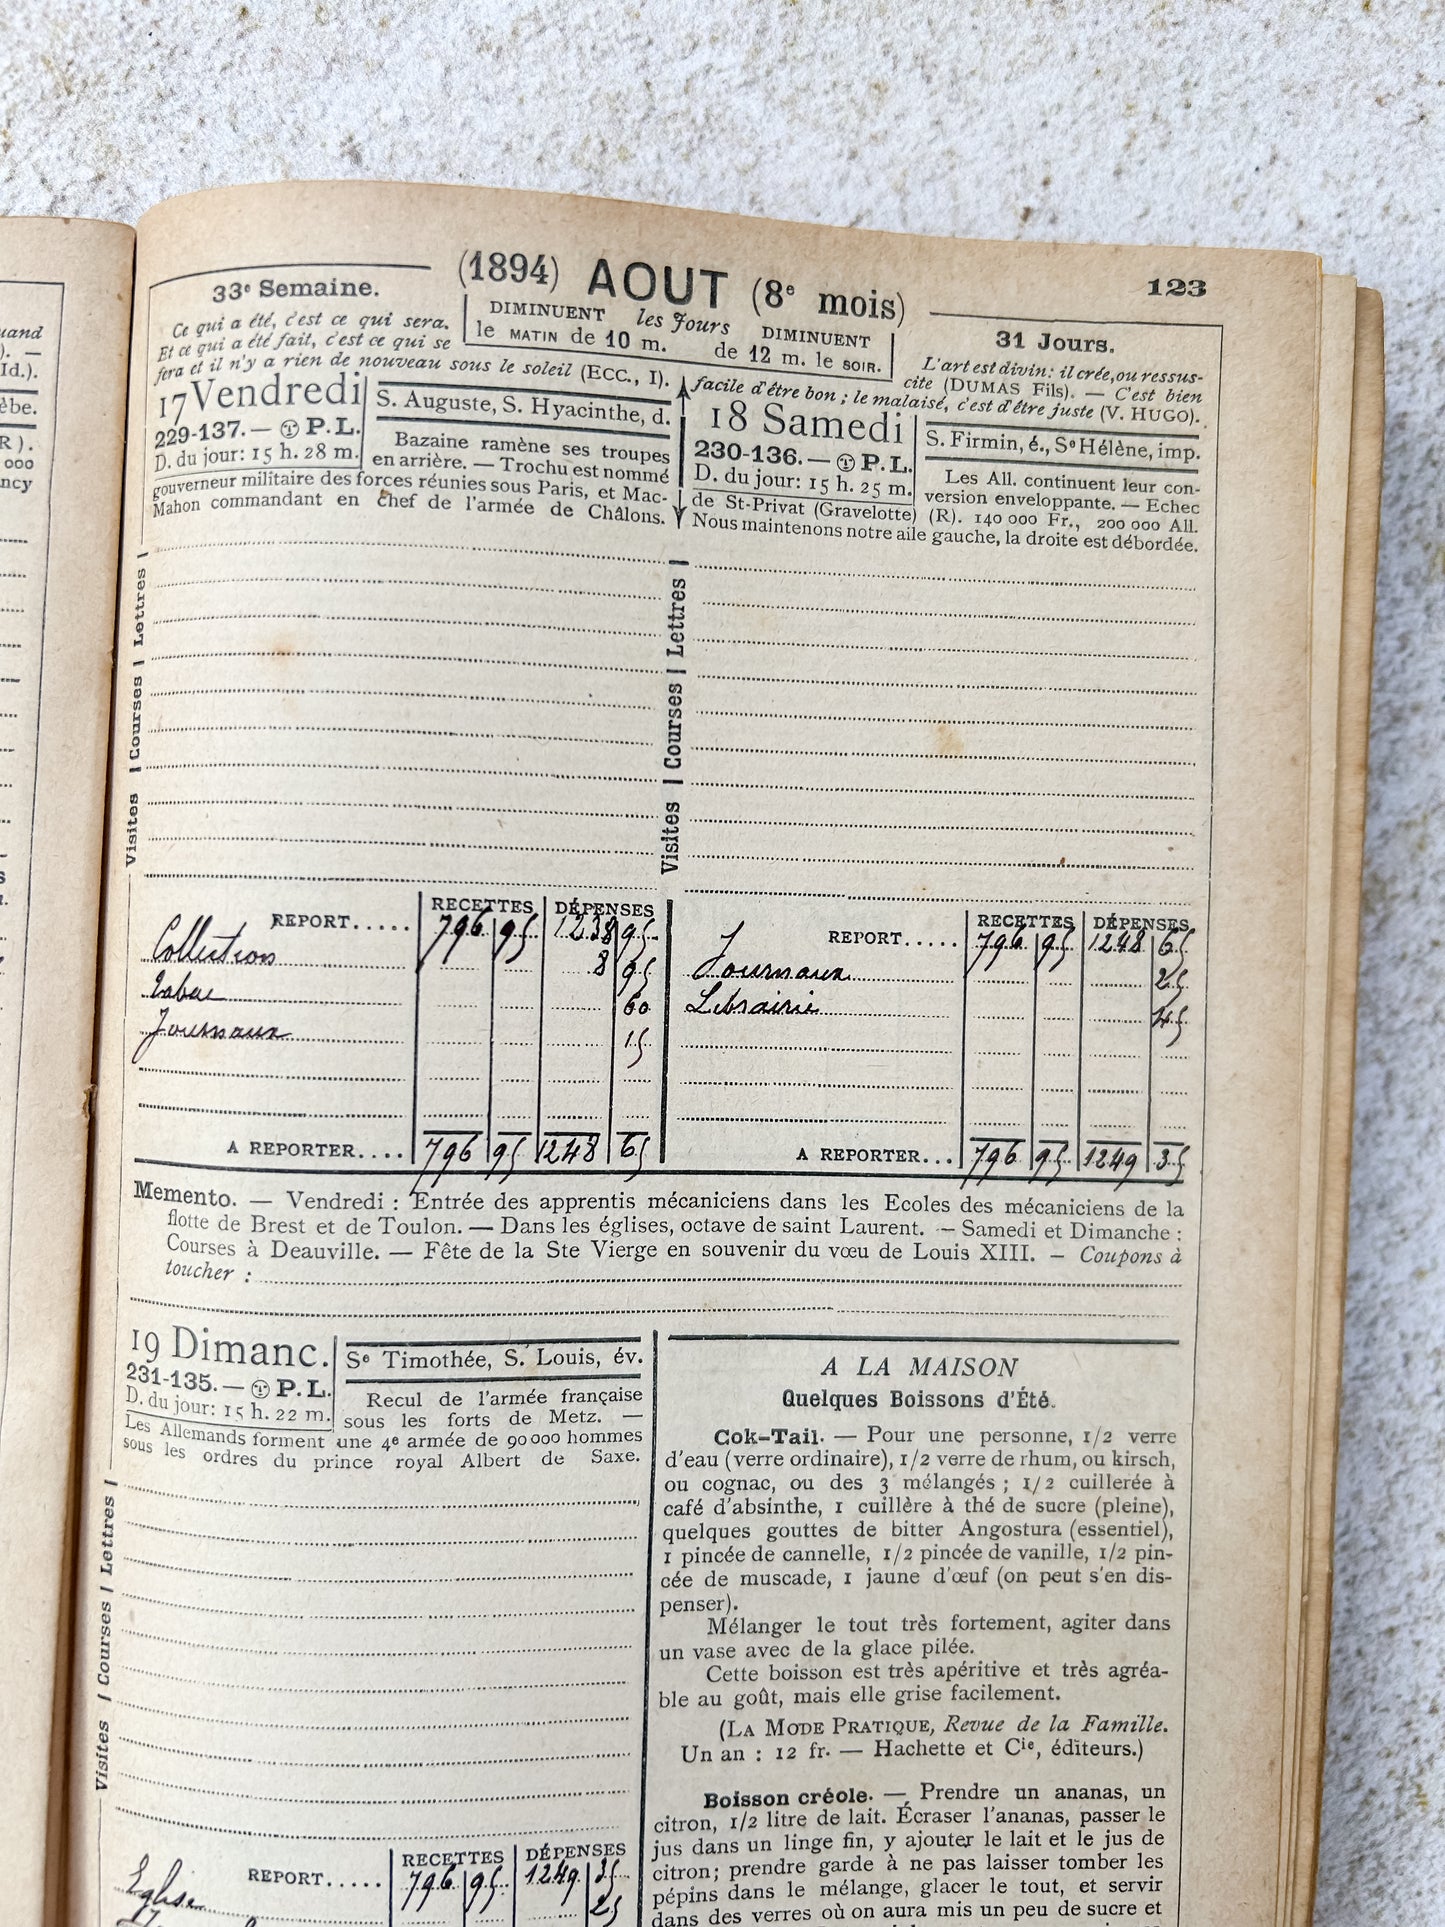 uand
). —
Id.).
èbe.
R).
000
ncy
(1894) AOUT (8e mois)
123
33e Semaine.
Ce qui a été, c'est ce qui sera.
Et ce qui a été fait, c'est ce qui se
fera et il n'y a rien de nouveau sous le soleil (ECC., I).
DIMINUENT les Jours DIMINUENT
le MATIN de 10 m. de 12 m. le SOIR.
31 Jours.
L'art est divin: il crée, ou ressus-
cite (DUMAS Fils). — C'est bien
facile d'être bon ; le malaisé, c'est d'être juste (V. HUGO).
17 Vendredi
229-137. — P. L.
D. du jour: 15 h. 28 m.
S. Auguste, S. Hyacinthe, d.
Bazaine ramène ses troupes
en arrière. — Trochu est nommé
gouverneur militaire des forces réunies sous Paris, et Mac-
Mahon commandant en chef de l'armée de Châlons.
18 Samedi
230-136. — P. L.
D. du jour: 15 h. 25 m.
S. Firmin, é., Se Hélène, imp.
Les All. continuent leur con-
version enveloppante. — Echec
de St-Privat (Gravelotte) (R). 140 000 Fr., 200 000 All.
Nous maintenons notre aile gauche, la droite est débordée.
Visites | Courses | Lettres |
Visites | Courses | Lettres |
RECETTES DÉPENSES
REPORT..... 796 95 1238 95
Collection 8 95
Tabac 60
Journaux 15
A REPORTER.... 796 95 1248 65
RECETTES DÉPENSES
REPORT..... 796 95 1248 65
Journaux 25
Librairie 45
A REPORTER... 796 95 1249 35
Memento. — Vendredi : Entrée des apprentis mécaniciens dans les Ecoles des mécaniciens de la
flotte de Brest et de Toulon. — Dans les églises, octave de saint Laurent. — Samedi et Dimanche :
Courses à Deauville. — Fête de la Ste Vierge en souvenir du vœu de Louis XIII. — Coupons à
toucher :
19 Dimanc.
231-135. — P. L.
D. du jour: 15 h. 22 m.
Se Timothée, S. Louis, év.
Recul de l'armée française
sous les forts de Metz. —
Les Allemands forment une 4e armée de 90000 hommes
sous les ordres du prince royal Albert de Saxe.
Visites | Courses | Lettres |
RECETTES DÉPENSES
REPORT..... 796 95 1249 35
Eglise 25
A LA MAISON
Quelques Boissons d'Été.
Cok-Tail. — Pour une personne, 1/2 verre
d'eau (verre ordinaire), 1/2 verre de rhum, ou kirsch,
ou cognac, ou des 3 mélangés ; 1/2 cuillerée à
café d'absinthe, 1 cuillère à thé de sucre (pleine),
quelques gouttes de bitter Angostura (essentiel),
1 pincée de cannelle, 1/2 pincée de vanille, 1/2 pin-
cée de muscade, 1 jaune d'œuf (on peut s'en dis-
penser).
Mélanger le tout très fortement, agiter dans
un vase avec de la glace pilée.
Cette boisson est très apéritive et très agréa-
ble au goût, mais elle grise facilement.
(LA MODE PRATIQUE, Revue de la Famille.
Un an : 12 fr. — Hachette et Cie, éditeurs.)
Boisson créole. — Prendre un ananas, un
citron, 1/2 litre de lait. Écraser l'ananas, passer le
jus dans un linge fin, y ajouter le lait et le jus de
citron; prendre garde à ne pas laisser tomber les
pépins dans le mélange, glacer le tout, et servir
dans des verres où on aura mis un peu de sucre et